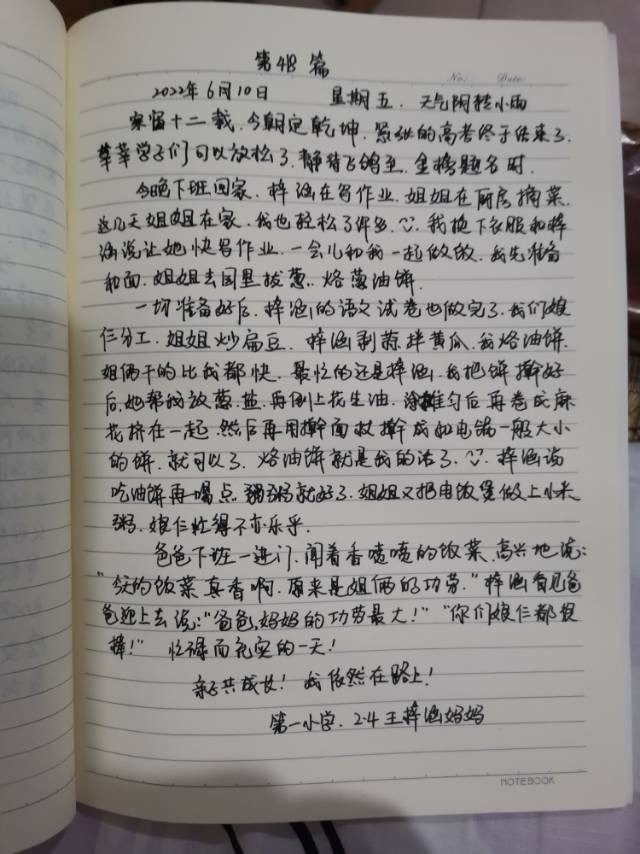 第48篇
No. Date.
2022年6月10日 星期五. 天气阴转小雨
寒窗十二载,今朝定乾坤.紧张的高考终于结束了.
莘莘学子们可以放松了.静待飞鸽至.金榜题名时.
今晚下班回家.梓涵在写作业.姐姐在厨房摘菜.
这几天姐姐在家.我也轻松了许多.我换下衣服和梓
涵说让她快写作业.一会儿和我一起做饭.我先准备
和面.姐姐去园里拔葱.烙葱油饼.
一切准备好后.梓涵的语文试卷也做完了.我们娘
仨分工.姐姐炒扁豆.梓涵剥蒜拌黄瓜.我烙油饼.
姐俩干的比我都快.最忙的还是梓涵.我把饼擀好
后.她帮我放葱.盐.再倒上花生油.涂摊匀后再卷成麻
花挤在一起.然后再用擀面杖擀成如电锅一般大小
的饼.就可以了.烙油饼就是我的活了.梓涵说
吃油饼再喝点粥就好了.姐姐又把电饭煲做上小米
粥.娘仨忙得不亦乐乎.
爸爸下班一进门.闻着香喷喷的饭菜.高兴地说:
"今天的饭菜真香啊.原来是姐俩的功劳."梓涵看见爸
爸迎上去说:"爸爸,妈妈的功劳最大!""你们娘仨都很
棒!"忙碌而充实的一天!
亲子共成长!我依然在路上!
第一小学.2.4王梓涵妈妈
NOTEBOOK